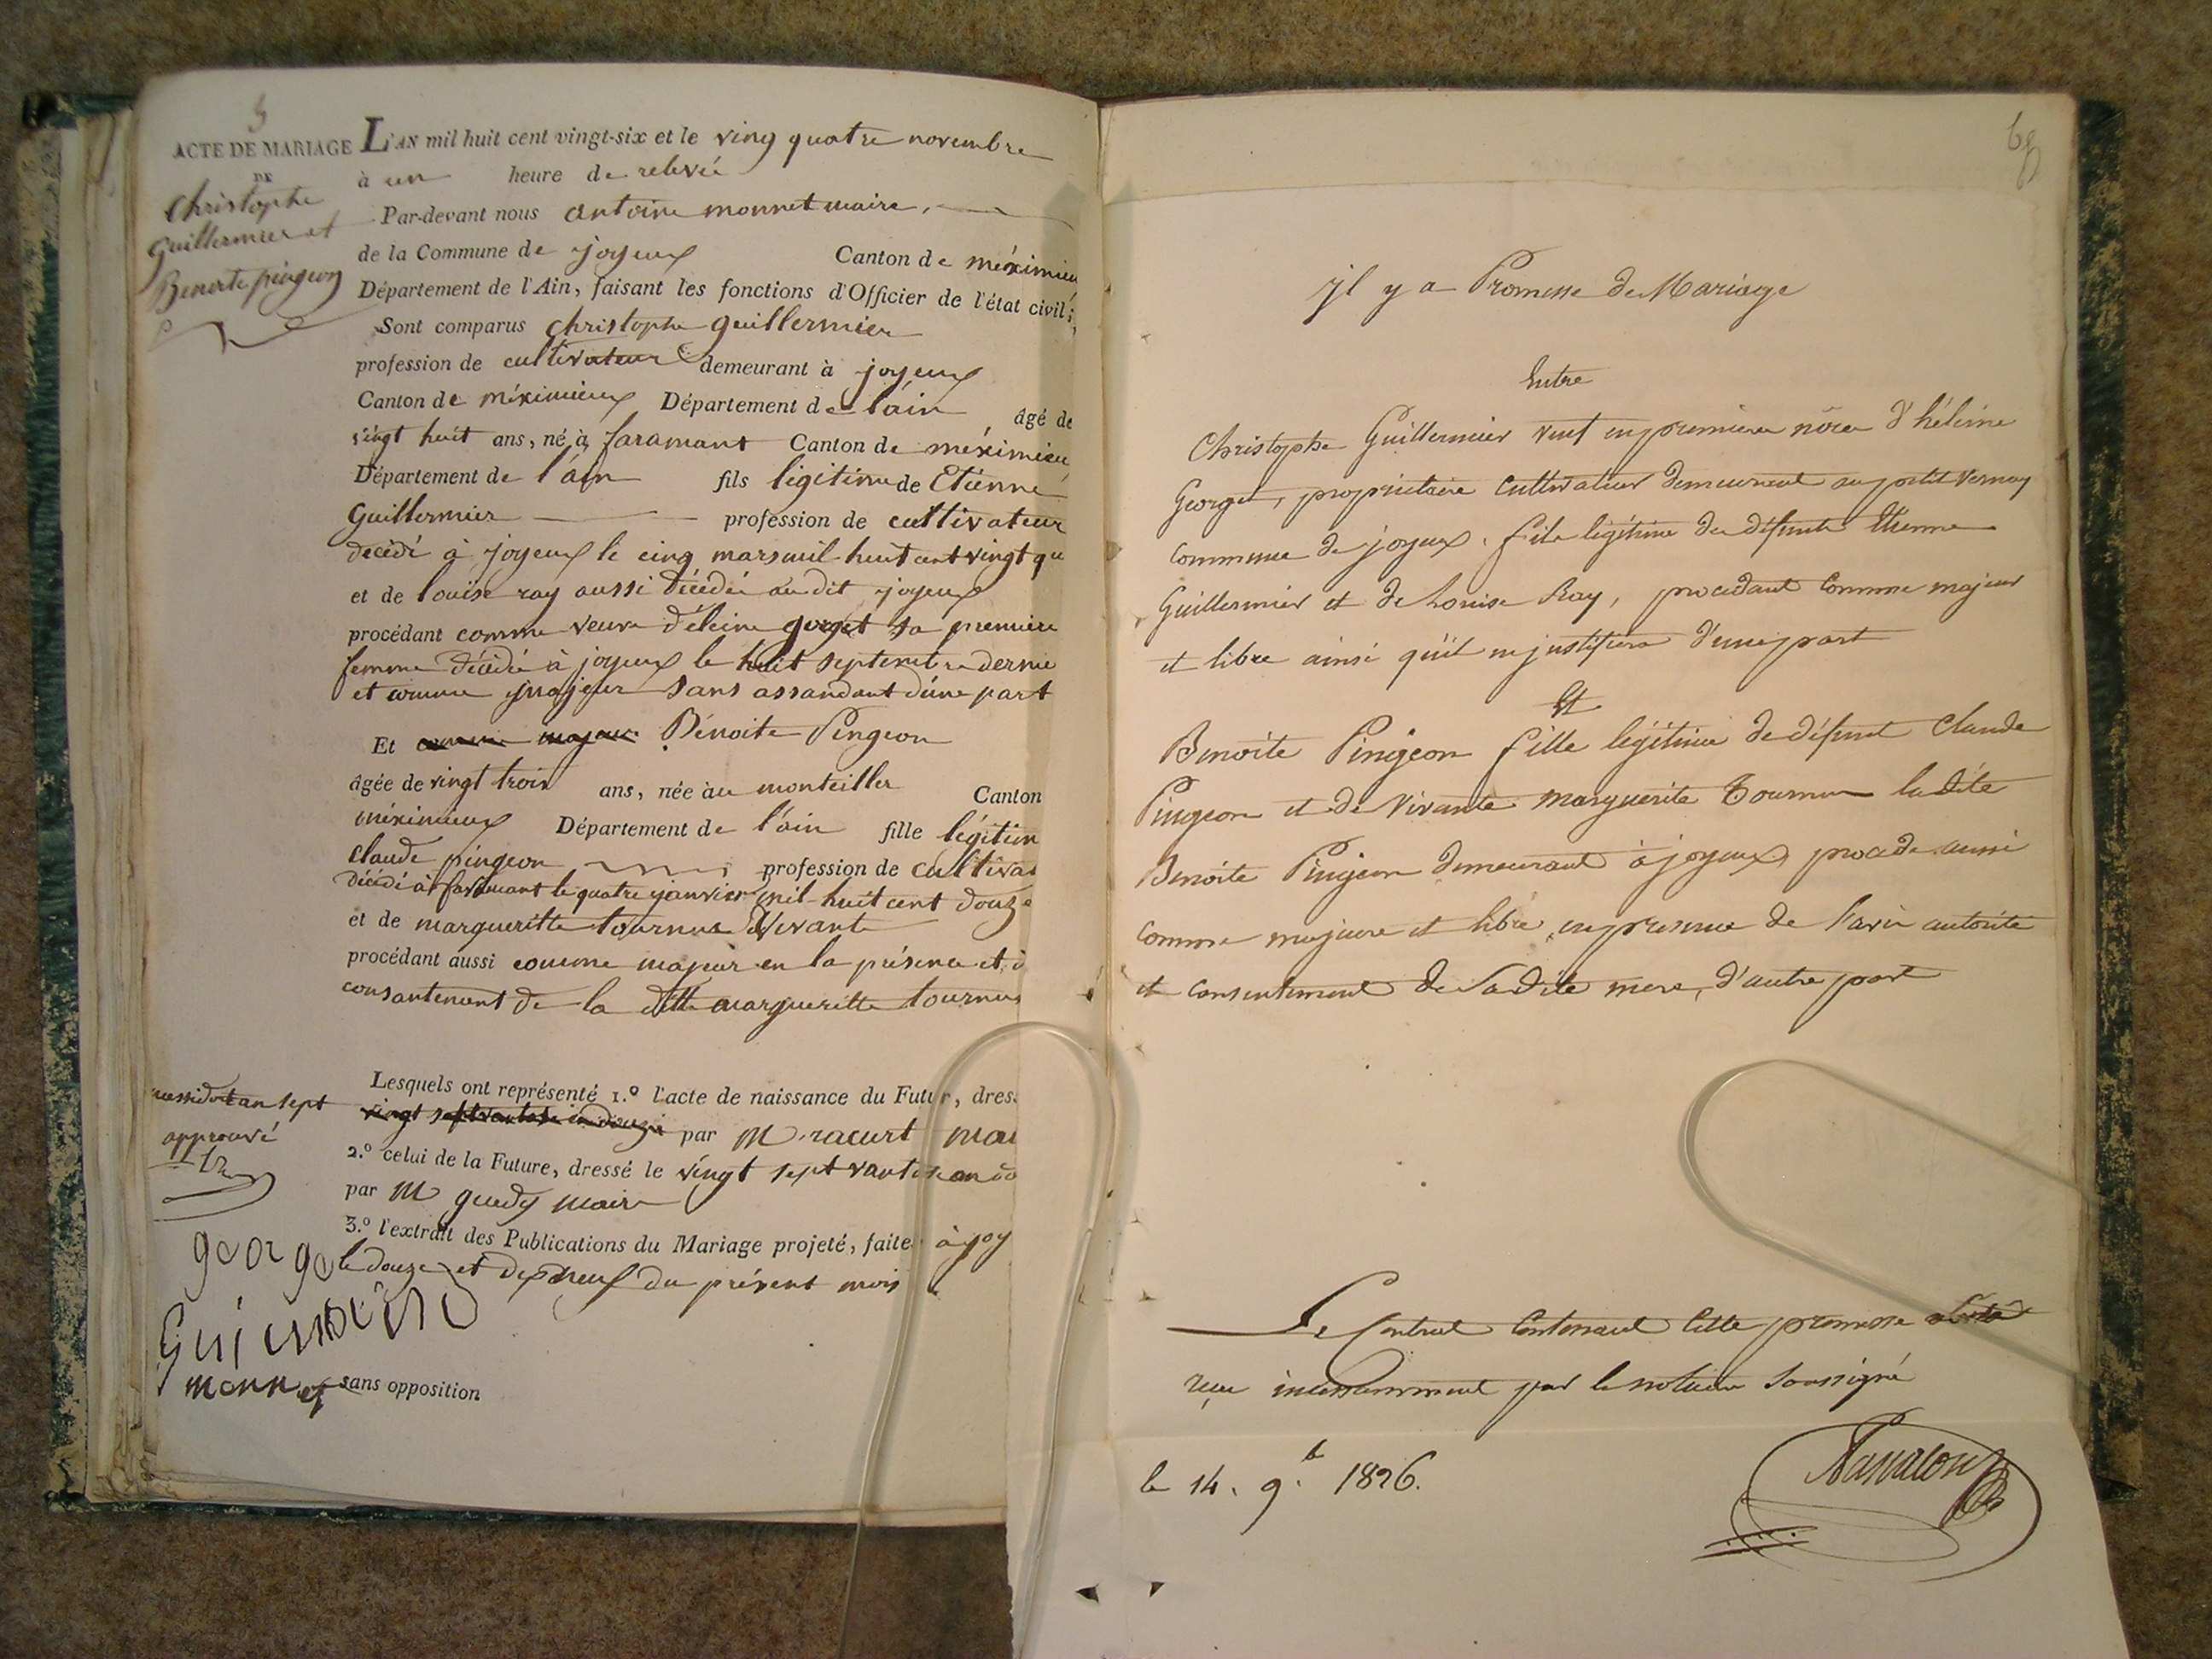 3
ACTE DE MARIAGE
DE
Christophe
Guillermier et
Benoite pingeon
L'AN mil huit cent vingt-six et le ving quatre novembre
à un heure de relevée
Par-devant nous antoine monnet maire,
de la Commune de joyeux Canton de méximieu
Département de l'Ain, faisant les fonctions d'Officier de l'état civil;
Sont comparus christophe guillermier
profession de cultivateur demeurant à joyeux
Canton de méximieux Département de l'ain âgé de
vingt huit ans, né à faramant Canton de méximieu
Département de l'ain fils légitime de Etienne
Guillermier profession de cultivateur
décédé à joyeux le cinq mars mil-huit cent vingt qu
et de louise ray aussi décédée au dit joyeux
procédant comme veuve d'éleine gorget sa premiére
femme décédée à joyeux le huit septembre dernie
et comme majeur sans assandant d'une part
Et comme majeur Bénoite Pingeon
âgée de vingt trois ans, née àu monteiller Canton
méximieux Département de l'ain fille légitim
claude pingeon profession de cultivat
décédé à faramant le quatre janvier mil-huit cent douze
et de margueritte tournus Vivante
procédant aussi comme majeur en la présence et d
consantement de la ditte margueritte tournus
Lesquels ont représenté 1.º l'acte de naissance du Futur, dres
messidor an sept
approuvé
par M racurt mai
2.º celui de la Future, dressé le vingt sept vantose an do
par M guedy maire
3.º l'extrait des Publications du Mariage projeté, faites à joy
le douze et dix neuf du présent mois
george
monnet
sans opposition
68
il y a Promesse de Mariage
Entre
Christophe Guillermier veuf en premiere nôce d'héleine
Georget, propriétaire cultivateur demeurant au petit vernay
commune de joyeux, fils légitime de défunts Etienne
Guillermier et de Louise Ray, procédant comme majeur
et libre ainsi qu'il en justifiera d'une part
Et
Benoite Pingeon fille légitime de défunt Claude
Pingeon et de vivante Marguerite Tournus ladite
Benoite Pingeon demeurant à joyeux, procède aussi
comme majeure et libre, en presence de l'avis autorité
et consentement de sadite mere, d'autre part
Le Contrat contenant cette promesse
reçu incessamment par le notaire soussigné
le 14. 9.b 1826.